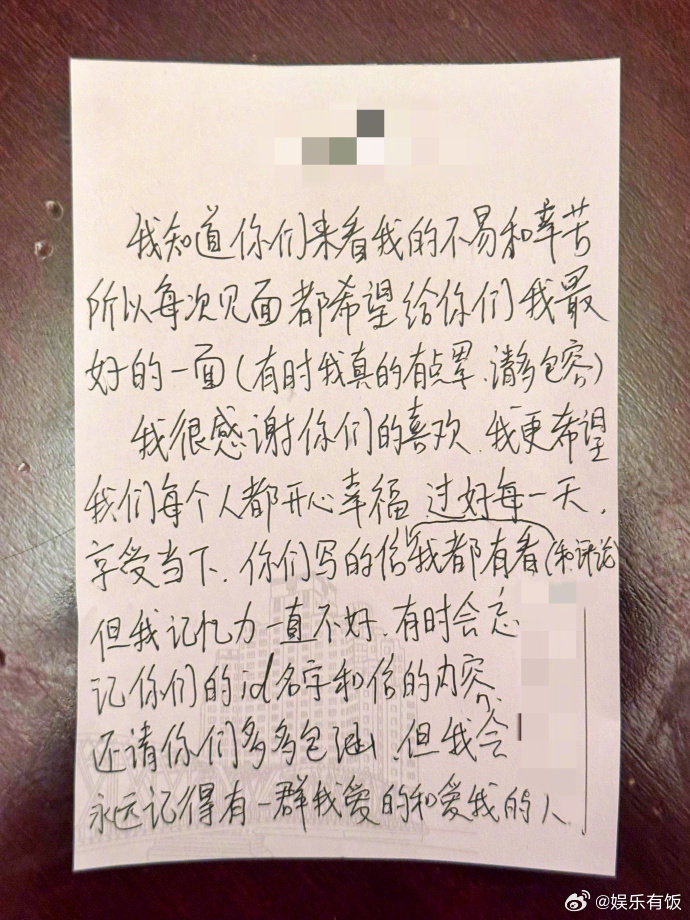 我知道你们来看我的不易和辛苦
所以每次见面都希望给你们我最
好的一面(有时我真的有点累、请多包容)
我很感谢你们的喜欢、我更希望
我们每个人都开心幸福、过好每一天,
享受当下、你们写的信我都有看(和评论)
但我记忆力一直不好、有时会忘
记你们的id名字和信的内容、
还请你们多多包涵、但我会
永远记得有一群我爱的和爱我的人
@娱乐有饭